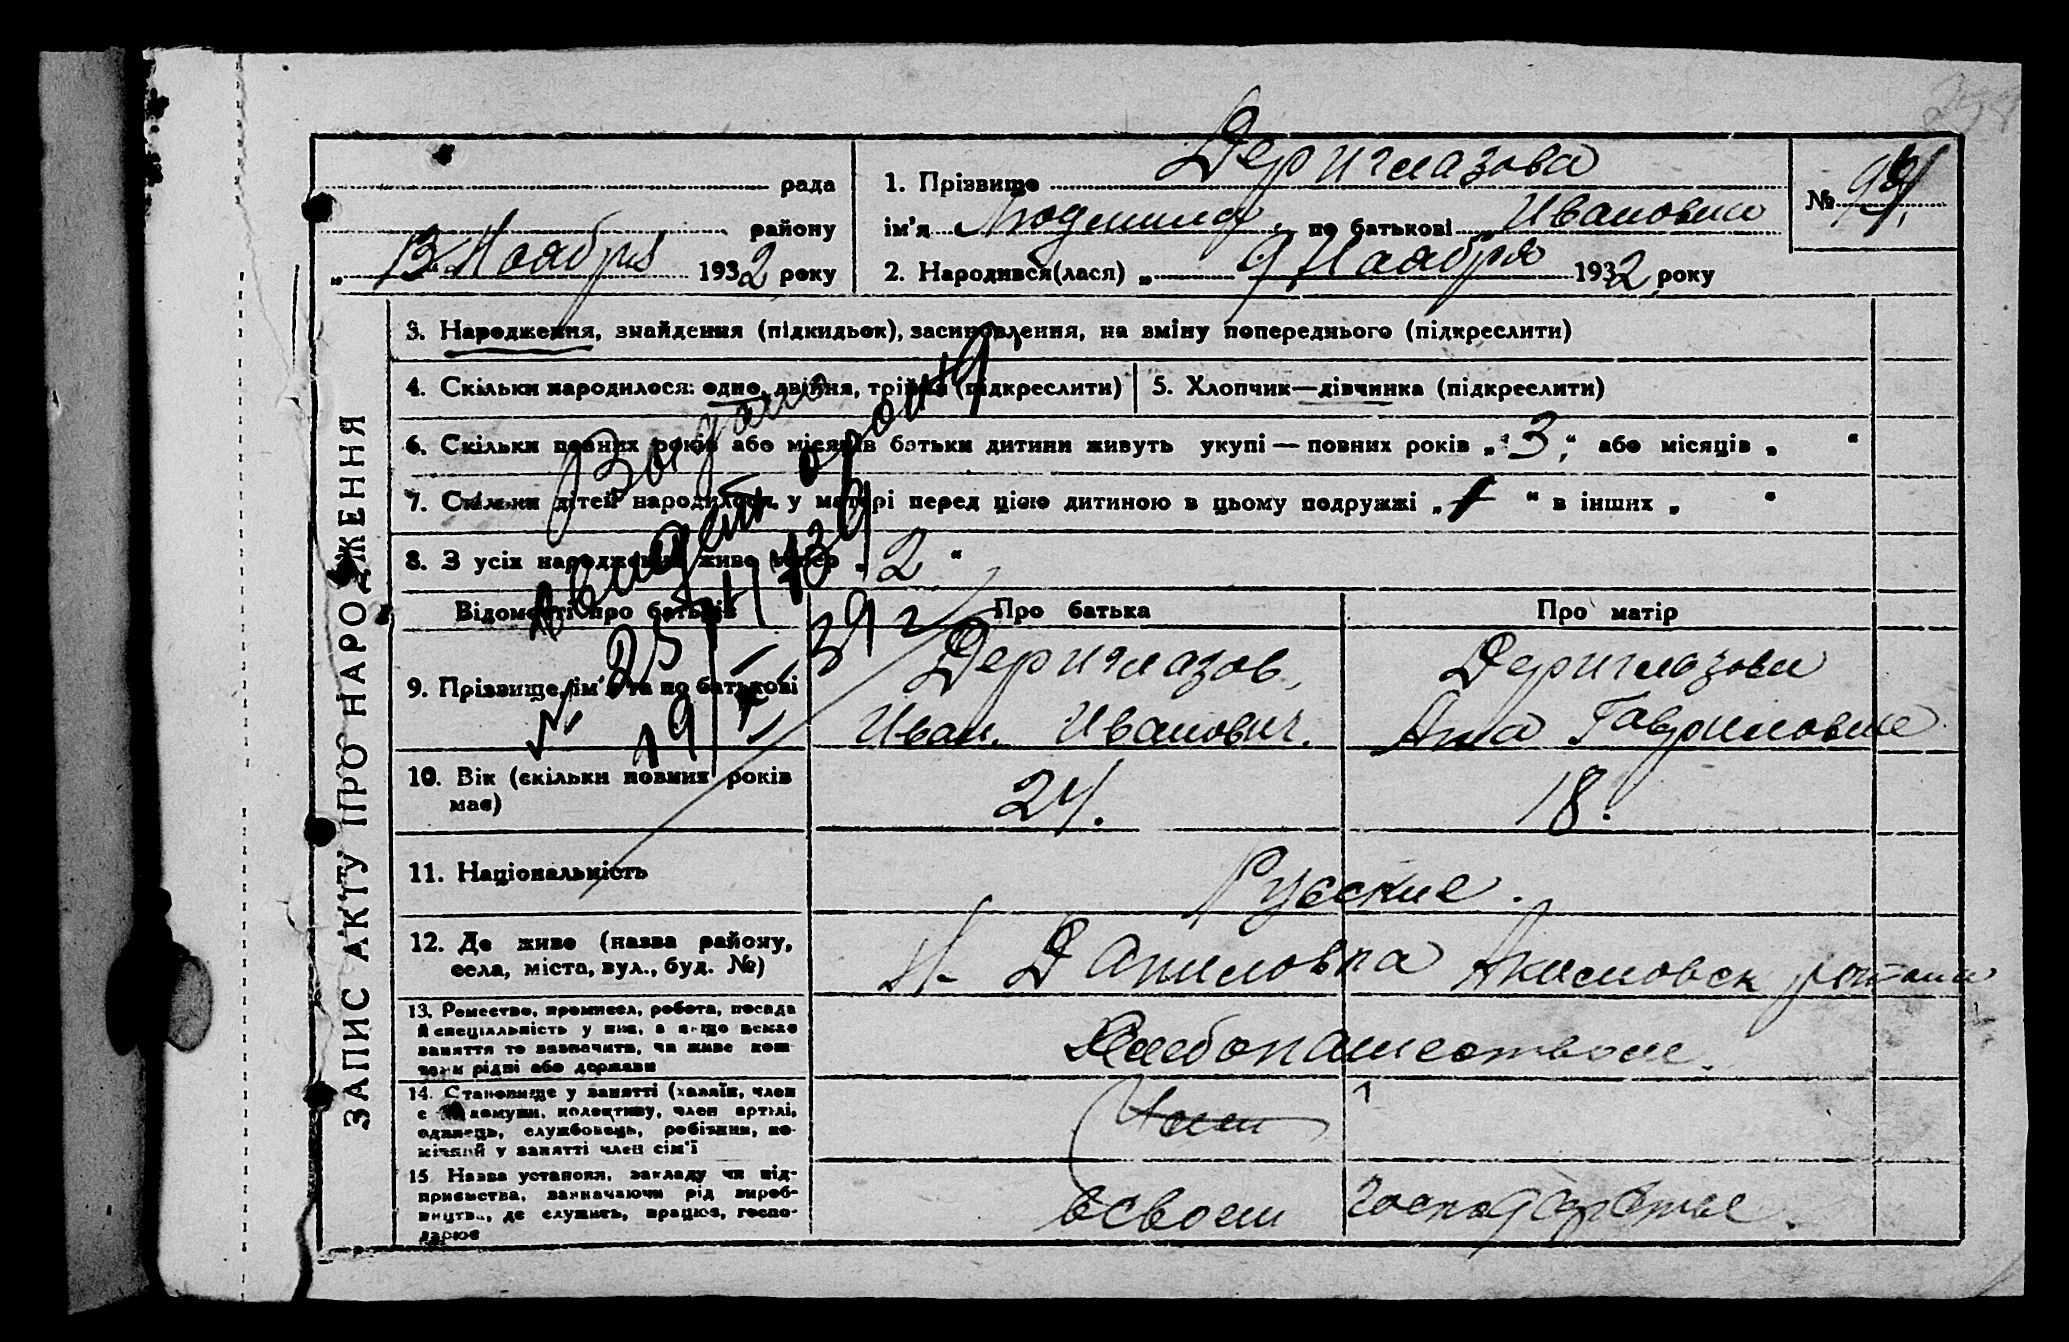 Дериглазова
рада
1. Прізвище
№
району
ім'я Людмила по батькові Ивановна
„13“ Ноября 1932 року
2. Народився(лася) „ 9 Ноября 1932 року
ЗАПИС АКТУ ПРО НАРОДЖЕННЯ
3. Народження, знайдення (підкидьок), засиновлення, на зміну попереднього (підкреслити)
4. Скільки народилося: одно, двійня, трійня (підкреслити)
5. Хлопчик—дівчинка (підкреслити)
6. Скільки повних років або місяців батьки дитини живуть укупі — повних років „3“ або місяців „ “
7. Скільки дітей народилося у матері перед цією дитиною в цьому подружжі „1“ в інших „ “
8. З усіх народжених живе тепер „2“
39 г
Відомості про батьків
Про батька
Про матір
9. Прізвище, ім'я та по батькові
Дериглазов,
Иван. Иванович.
Дериглазова
Анна Гавриловна
10. Вік (скільки повних років має)
24.
18.
11. Національність
Русские.
12. Де живе (назва району,
села, міста, вул., буд. №)
Даниловка Акимовск района
13. Ремество, промисел, робота, посада
й спеціяльність у них, а якщо немає
заняття то зазначити, чи живе кош-
тами рідні або держави
Хлебопашеством.
14. Становище у занятті (хазяїн, член
комуни, колективу, член артілі,
одинець, службовець, робітник, по-
мічний у занятті член сім'ї
15. Назва установи, закладу чи під-
приємства, зазначаючи рід вироб-
ництва, де служить, працює, госпо-
дарює
в своем господарстве.